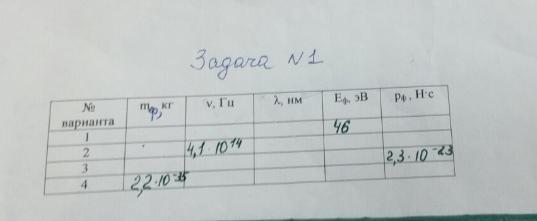 Задача N1
№ варианта mф, кг ν, Гц λ, нм Eф, эВ pф, Н·с
1 46
2 4,1·10¹⁴
3 2,3·10⁻²³
4 2,2·10⁻³⁵